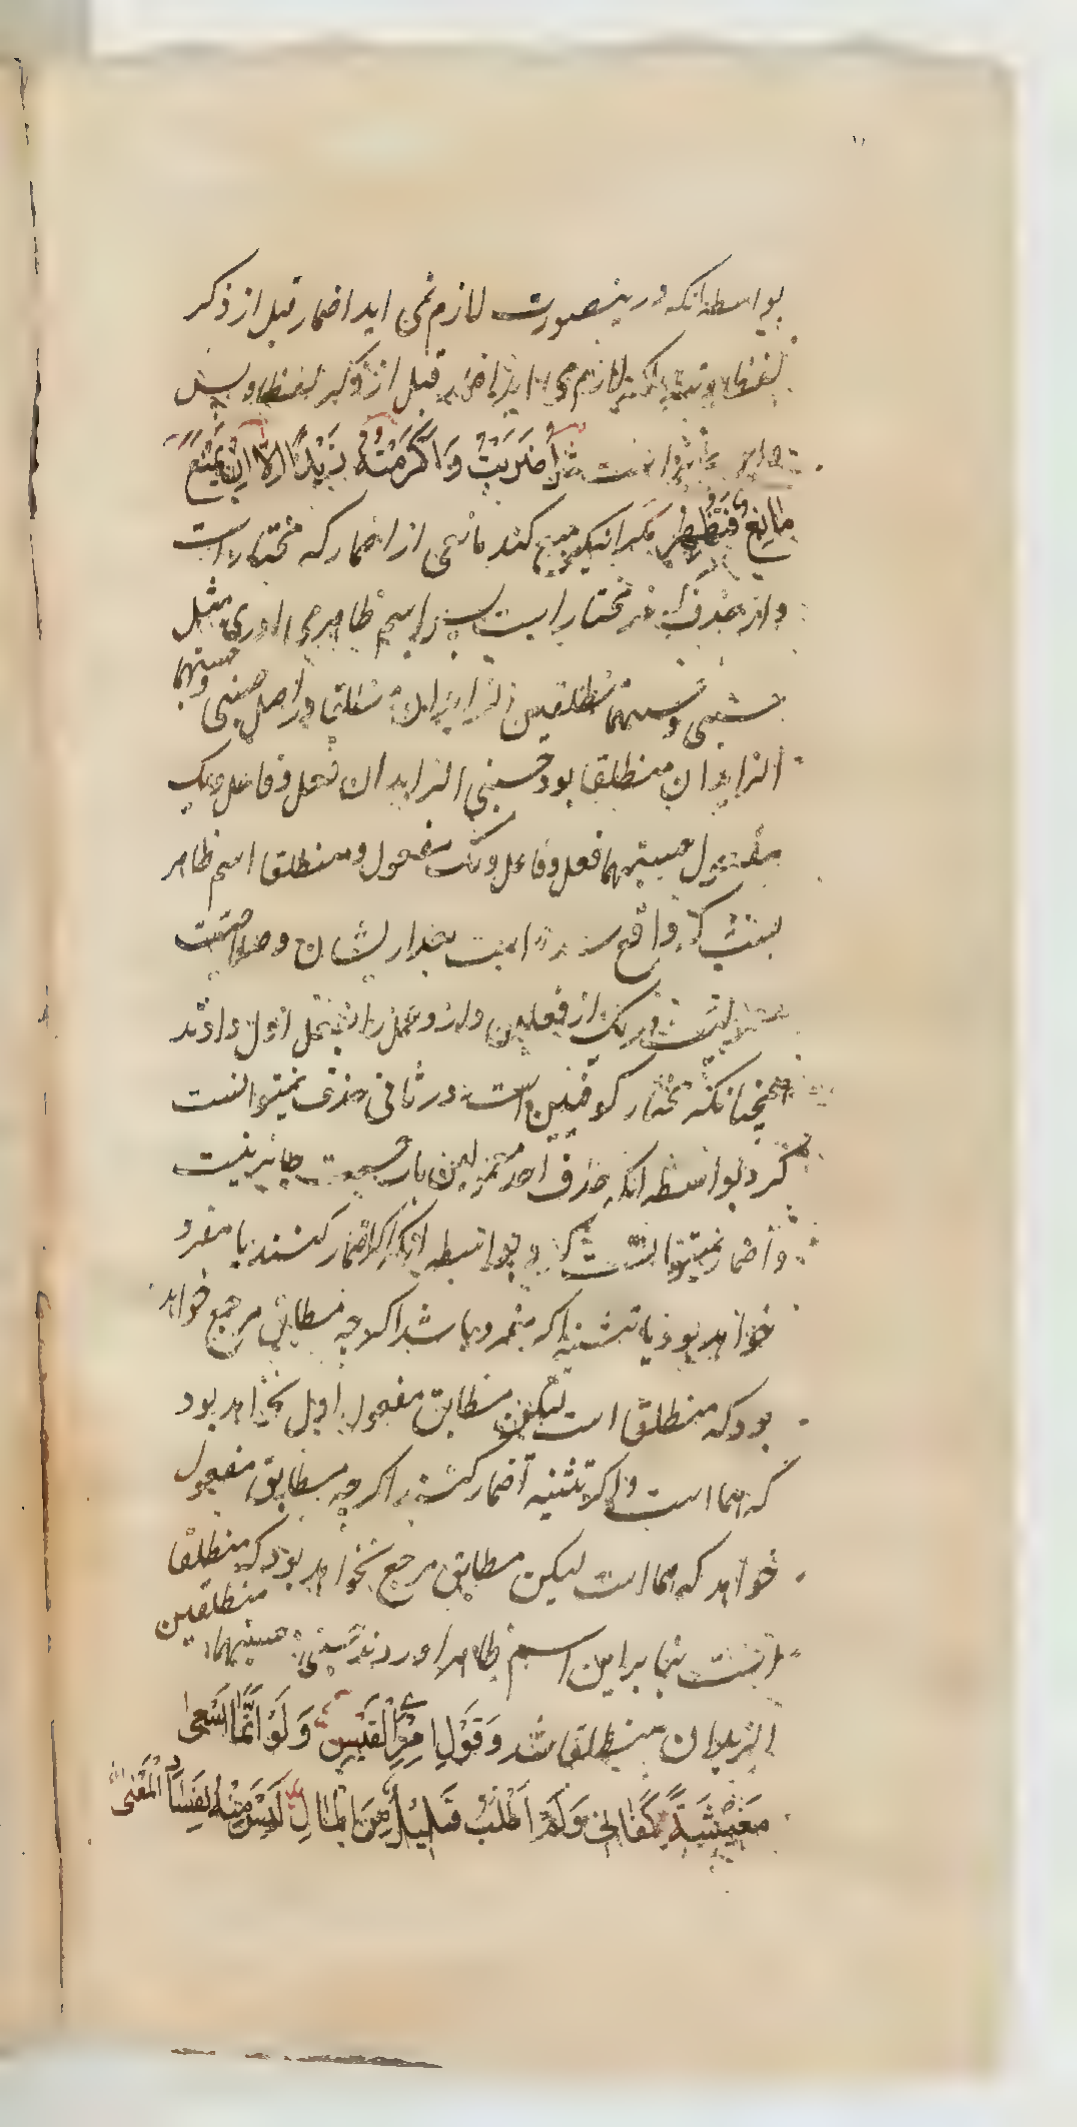 بواسطه انکه درینصورت لازم نمی اید اضمار قبل از ذکر
لفظا ورتبة بلکه لازم می اید اضمار قبل از ذکر لفظا وبس
جایز است ضَرَبَتُ وَاَکْرَمْتُهُ زَیْدًا اِلّا اَنْ یَمْنَعَ
مانِعٌ فَتُظْهِرُ مکر انیکه منع کند مانعی از اضمار که مختار است
واز حذف که غیر مختار است پس اسم ظاهر می اوری مثل
حسبنی وحسبتهما منطلقین الزایدان منطلقا در اصل حسبنی وحسبتهما
الزایدان منطلقا بود حسبنی الزایدان فعل وفاعل ویک
مفعول حسبتهما فعل وفاعل ویک مفعول ومنطلقا اسم ظاهر
یست که واقع شده است بعد ایشان وصلاحیت
معمولیت هر یک از فعلین دارد وعمل را بفعل اول دادند
همچنانکه مختار کوفیین است در ثانی حذف نمیتوانست
کرد بواسطه انکه حذف احد مفعولین باب حسبت جایز نیست
واضمار نمیتوانست کرد بواسطه انکه اکر اضمار کنند یا مفرد
خواهد بود یا تثنیه اکر مفرد باشد اکرچه مطابق مرجع خواهد
بود که منطلقا است لیکن مطابق مفعول اول نخواهد بود
که هما است واکر تثنیه اضمار کنند اکرچه مطابق مفعول
خواهد که هما است لیکن مطابق مرجع نخواهد بود که منطلقا
است بنا براین اسم ظاهر اوردند حسبنی وحسبتهما منطلقین
الزیدان منطلقا شد وَقَوْلِ امْرِءِ الْقَیْسِ وَلَوْ اَنَّما اَسْعی
مَعیشَةً کَفانی وَلَمْ اَطْلُبْ قَلیلٌ مِنَ الْمالِ لَیْسَ مِنْهُ لِفَسادِ الْمَعْنی